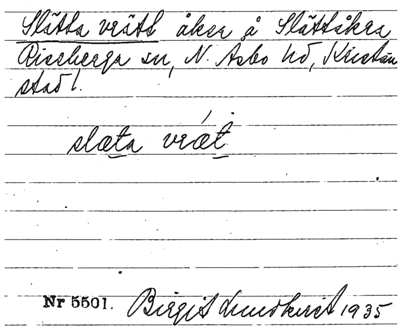 Slätta vrätt åker å Slättåkra
Riseberga sn, N. Åsbo hd, Kristian
stad l.
slæta vræt
Nr 5501. Birgit Lundkvist 1935